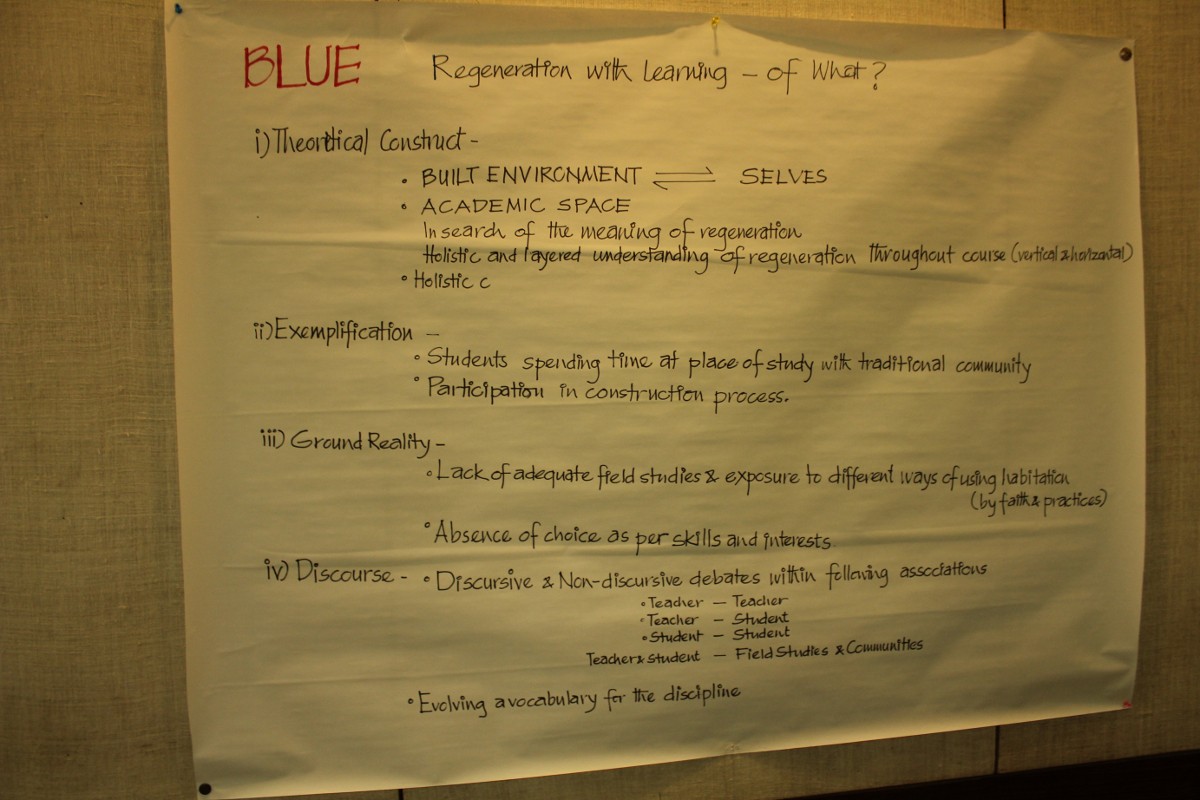 BLUE Regeneration with Learning – of What?
i) Theoritical Construct -
• BUILT ENVIRONMENT ⇌ SELVES
• ACADEMIC SPACE
In search of the meaning of regeneration
Holistic and layered understanding of regeneration throughout course (vertical & horizontal)
• Holistic c
ii) Exemplification –
• Students spending time at place of study with traditional community
• Participation in construction process.
iii) Ground Reality –
• Lack of adequate field studies & exposure to different ways of using habitation
(by faith & practices)
• Absence of choice as per skills and interests.
iv) Discourse - • Discursive & Non-discursive debates within following associations
• Teacher – Teacher
• Teacher – Student
• Student – Student
Teacher & Student – Field Studies & Communities
• Evolving a vocabulary for the discipline